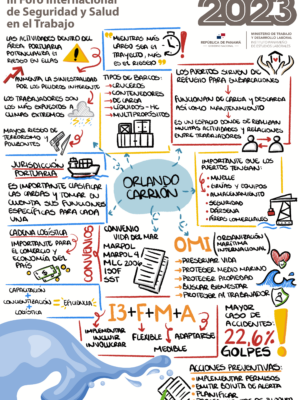 III Foro Internacional
de Seguridad y Salud
en el Trabajo
2023
REPÚBLICA DE PANAMÁ
MINISTERIO DE TRABAJO
Y DESARROLLO LABORAL
LAS ACTIVIDADES DENTRO DEL
ÁREA PORTUARIA
POTENCIALIZA EL
RIESGO EN ELLAS
"MIENTRAS MÁS
LARGO SEA EL
TRAYECTO, MÁS
ES EL RIESGO"
LOS PUERTOS SIRVEN DE
REFUGIO PARA EMBARCACIONES
AUMENTA LA SINIESTRALIDAD
POR LOS PELIGROS INHERENTES
LOS TRABAJADORES SON
LOS MÁS EXPUESTOS A
CLIMAS EXTREMOS
MAYOR RIESGO DE
TERRORISMO Y
POLIZONTES
TIPOS DE BARCOS:
• CRUCEROS
• CONTENEDORES
• DE CARGA
• LÍQUIDOS - HC
• MULTIPROPÓSITOS
FUNCIONAN DE CARGA Y DESCARGA
ASÍ COMO MANTENIMIENTO
ES UN ESPACIO DONDE SE REALIZAN
MUCHAS ACTIVIDADES Y RELACIONES
ENTRE TRABAJADORES
JURISDICCIÓN
PORTUARIA
ES IMPORTANTE CLASIFICAR
LAS CARGAS Y TOMAR EN
CUENTA SUS FUNCIONES
ESPECÍFICAS PARA CADA
UNA
ORLANDO
CARRIÓN
IMPORTANTE QUE LOS
PUERTOS TENGAN:
• MUELLE
• GRÚAS Y EQUIPOS
• ALMACENAMIENTO
• SEGURIDAD
• DÁRSENA
• ÁREAS COMERCIALES
CADENA LOGÍSTICA
IMPORTANTE PARA
EL COMERCIO Y LA
ECONOMÍA DEL
PAÍS
CONVENIOS
CONVENIO
VIDA DEL MAR
MARPOL
MARPOL 9
MLC 2006
ISOF
SST
OMI
ORGANIZACIÓN
MARÍTIMA
INTERNACIONAL
• PRESERVAR VIDA
• PROTEGER MEDIO MARINO
• PROTEGER PROPIEDAD
• BUSCAR BIENESTAR
• PROTEGER AL TRABAJADOR
CAPACITACIÓN
+
CONCIENTIZACIÓN = EFICIENCIA
+
LOGÍSTICA
I3+F+M+A
IMPLEMENTAR
INCLUIR
INVOLUCRAR
FLEXIBLE
ADAPTARSE
MEDIBLE
MAYOR
CASO DE
ACCIDENTES:
22,6%
GOLPES!
ACCIONES PREVENTIVAS:
• IMPLEMENTAR PERMISOS
• EMITIR BOLETA DE ALERTA
• PLANIFICAR